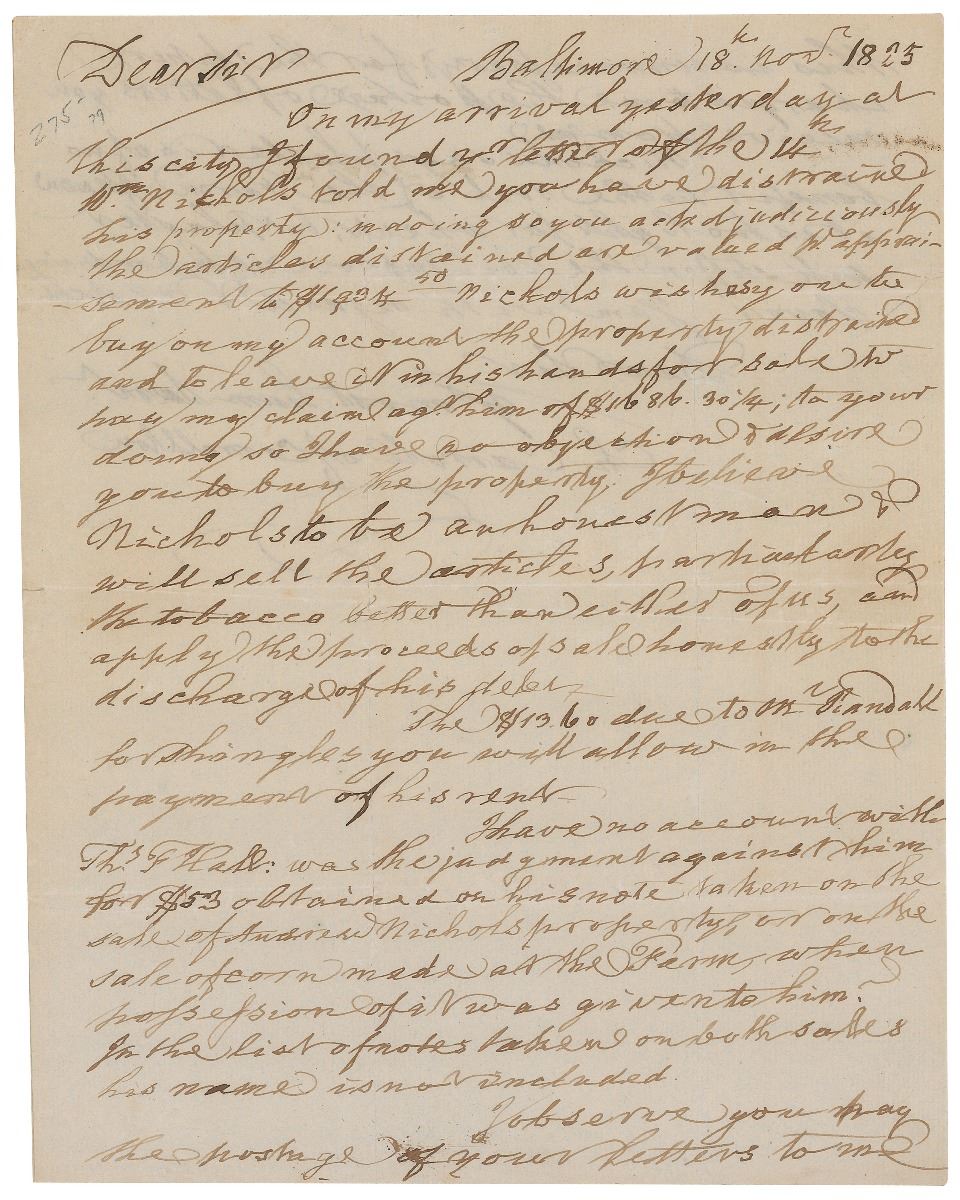 Dear sir Baltimore 18th. Novr. 1825
275
79
On my arrival yesterday at
this city, I found yr letter of the 14th
Wm Nichols told me you have distrained
his property: in doing so you acted judiciously
the articles distrained are valued pr apprai-
sement to $1934 50 Nichols wishes you to
buy on my account the property distrained
and to leave it in his hands for sale to
pay my claim agt him of $1686. 30 1/4; to your
doing so I have no objection & desire
you to buy the property. I believe
Nichols to be an honest man &
will sell the articles, particularly
the tobacco better than either of us, and
apply the proceeds of sale honestly to the
discharge of his debt
The $13.60 due to Mr Randall
for shingles you will allow in the
payment of his rent
I have no account with
Ths. F Hall: was the judgment against him
for $53 obtained on his note taken on the
sale of Andrew Nichols property, or on the
sale of corn made at the Farm, when
possession of it was given to him?
In the list of notes taken on both sales
his name is not included
I observe you pay
the postage of your letters to me